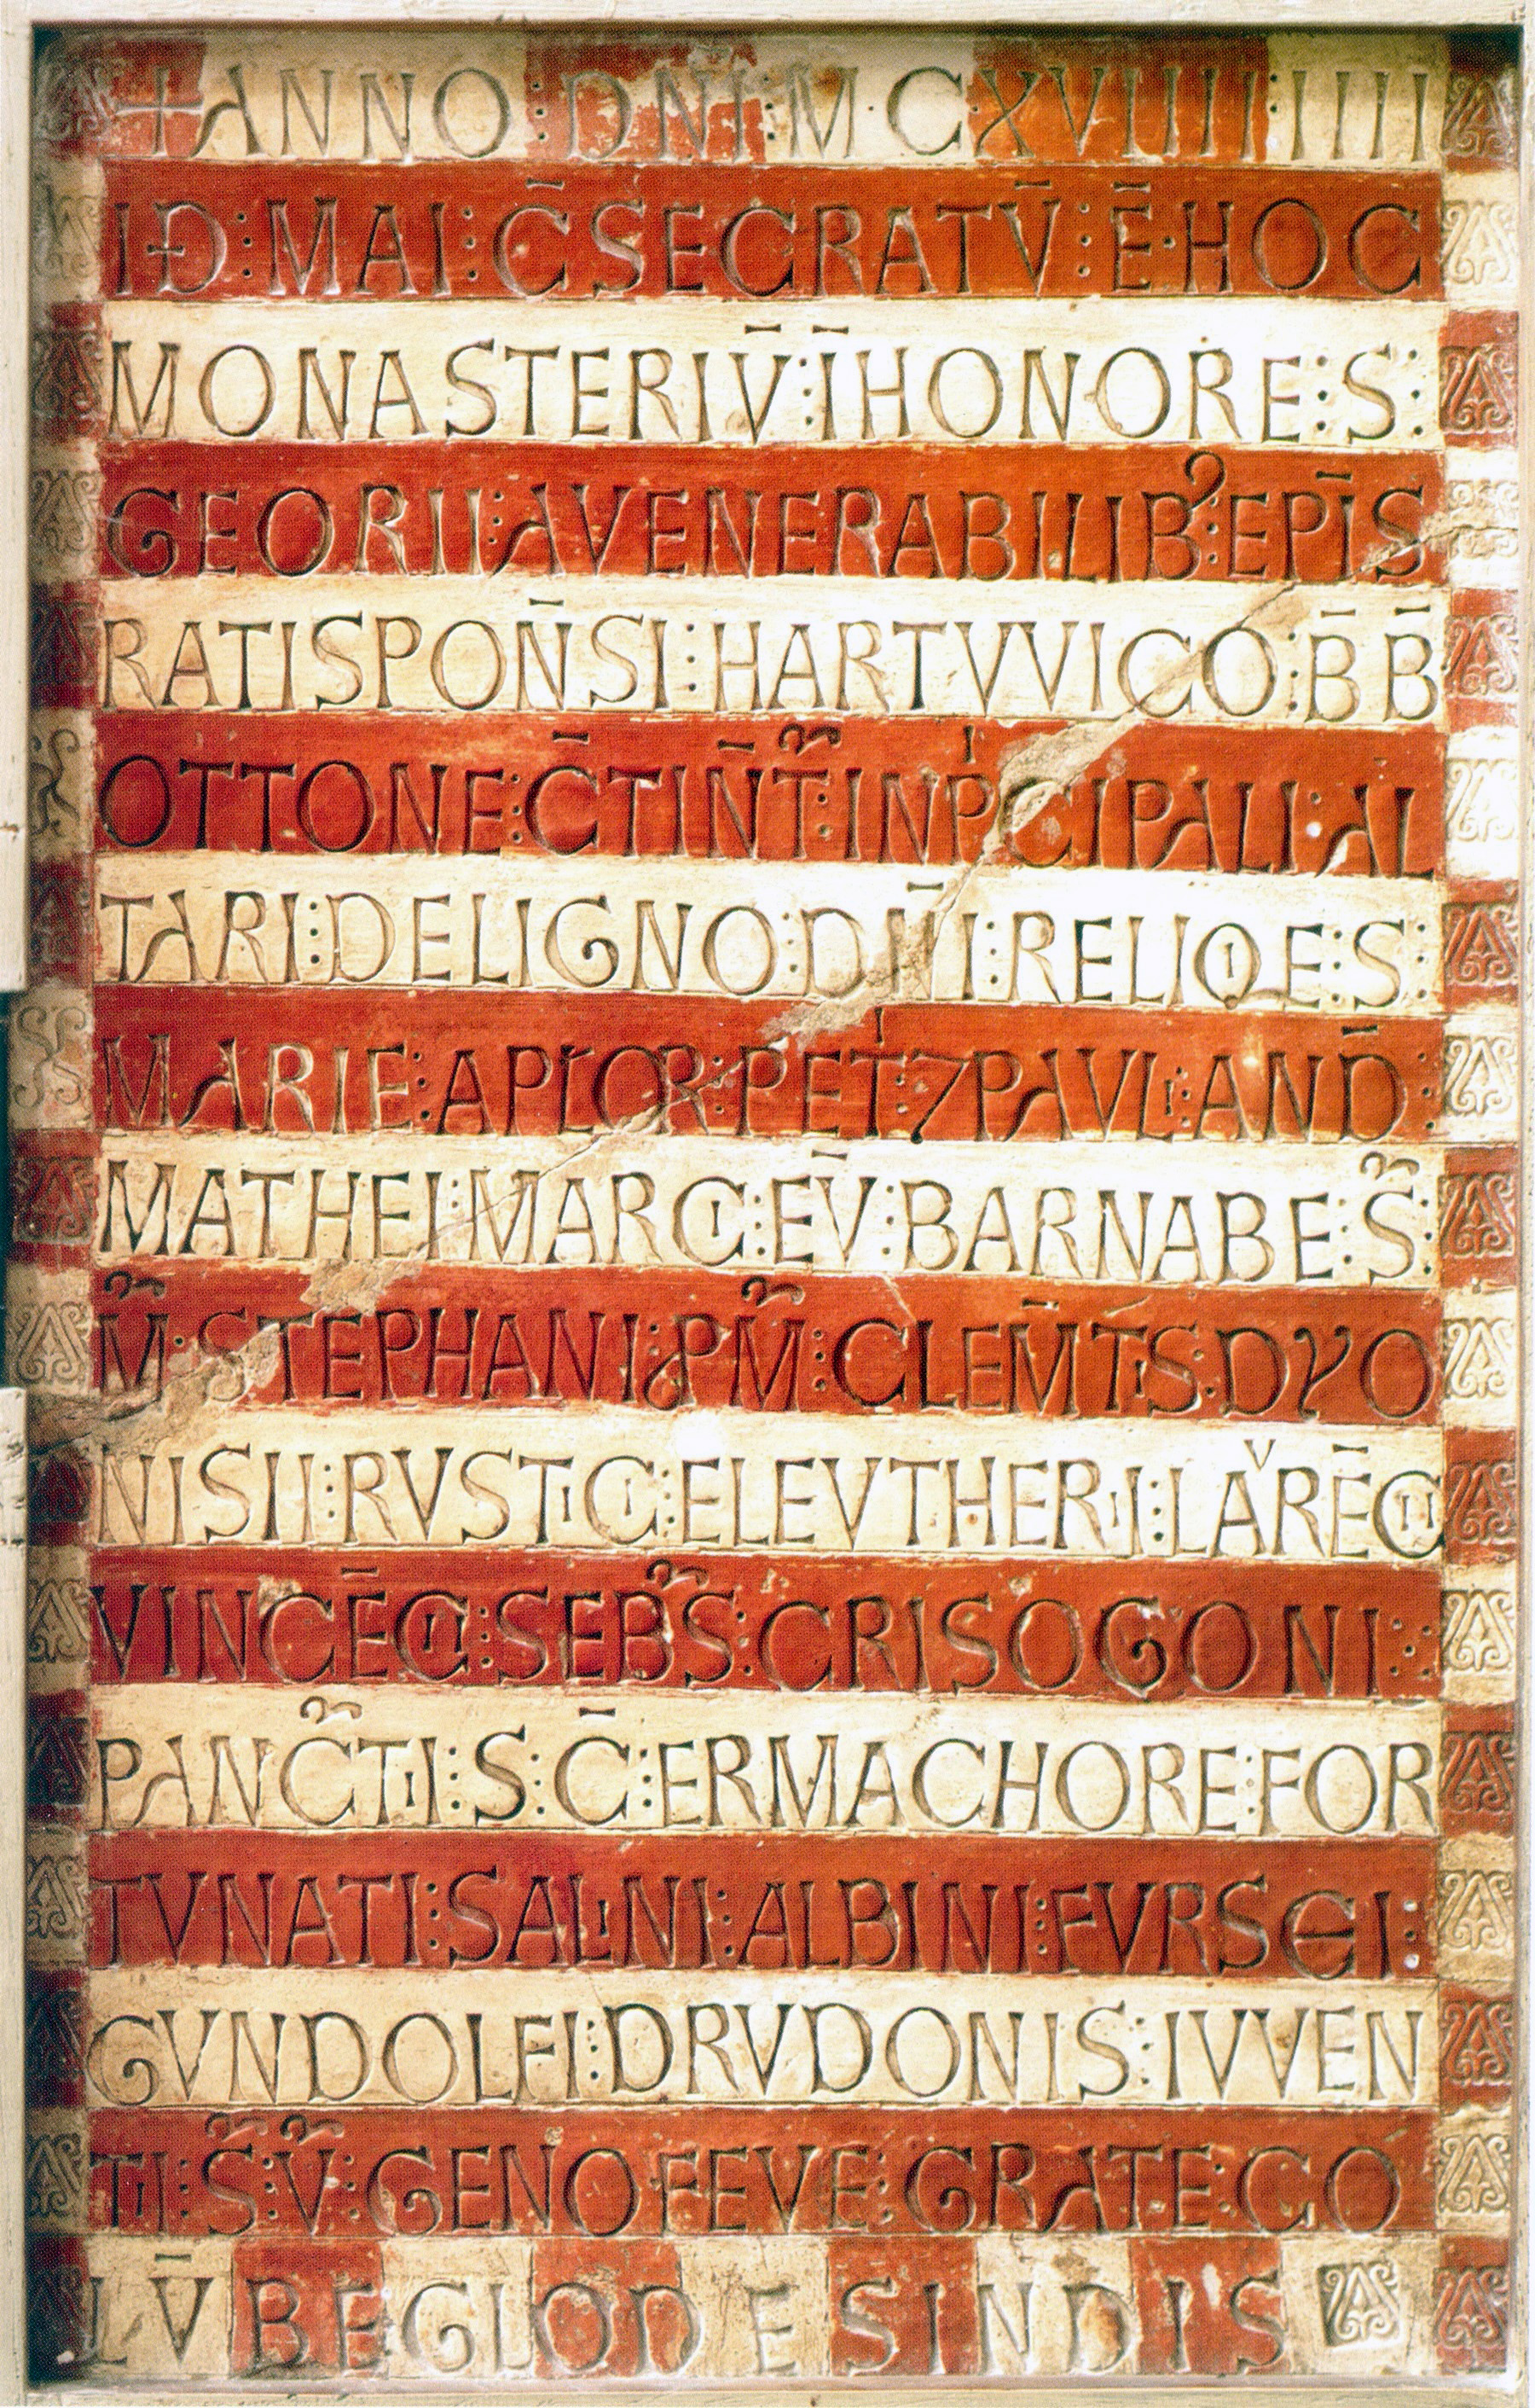 +ANNO : DNI : M · CXVIIII : IIII
IĐ : MAI : C̄SECRATV̄ : Ē · HOC
MONASTERIV̄ : ĪHONORE : S :
GEORII : AVENERABILIBꝰ : EPĪS
RATISPON̄SI : HARTVVICO : B̄B̄
OTTONE : C̄TIN̄T̄ : INPͥCIPALI : AL
TARI : DELIGNO : DN̄I : RELIQIE : S :
MARIE : APLOR : PETͥ : 7PAVLI : AND̄ :
MATHEI : MARCI : EV̄ : BARNABE : S̃ :
M̃ · STEPHANI : PM̃ : CLEM̄TIS : DYO
NISII : RVSTICI : ELEVTHERII : LAͮRĒCII
VINCĒCII : SEB̃S : CRISOGONI :
PANC̃TII : S : C̄ : ERMACHORE : FOR
TVNATI : SALINI : ALBINI : FVRSEI :
GVNDOLFI : DRVDONIS : IVVEN
TII : S̃ : Ṽ : GENOFEVE : GRATE : CO
LV̄BE GLODESINDIS